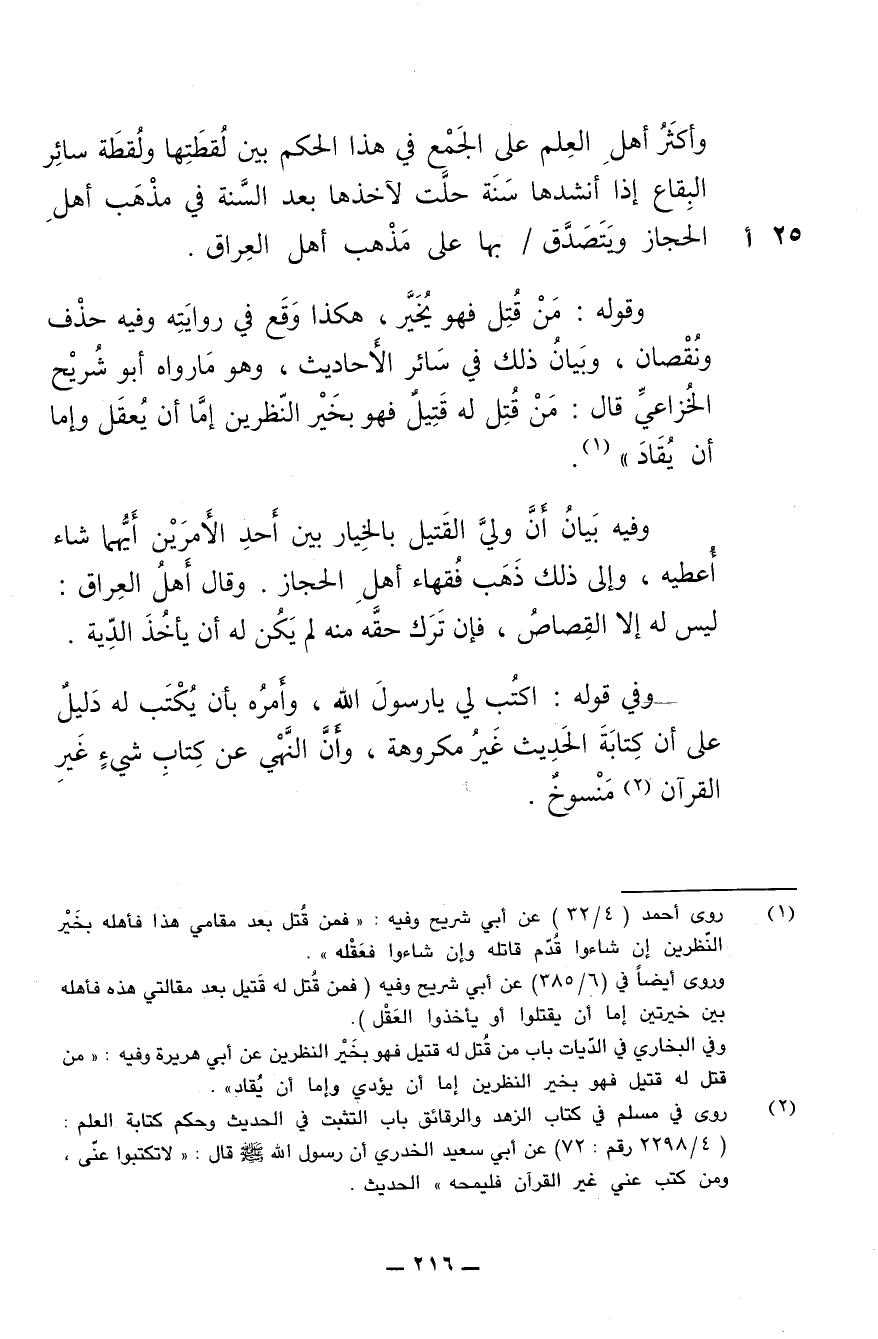 وأكثَرُ أهلِ العِلم على الجَمْع في هذا الحكم بين لُقطَتِها ولُقطَة سائِر
البِقاع إذا أنشدها سَنَة حلَّت لآخذها بعد السَّنة في مذْهَب أهلِ
٢٥ أ الحجاز ويَتَصَدَّق / بها على مَذْهب أهل العِراق .
وقوله : مَنْ قُتِل فهو يُخَيَّر ، هكذا وَقَع في روايَتِه وفيه حذْف
ونُقْصان ، وبَيانُ ذلك في سَائر الأَحاديث ، وهو مَارواه أبو شُريْح
الخُزاعيِّ قال : مَنْ قُتِل له قَتِيلٌ فهو بخَيْر النّظرين إمَّا أن يُعقَل وإما
أن يُقَادَ » (١).
وفيه بَيانُ أَنَّ وليَّ القَتيل بالخِيار بين أَحدِ الأَمرَيْن أَيُّهما شاء
أُعطيه ، وإلى ذلك ذَهَب فُقهاء أهلِ الحجاز . وقال أَهلُ العِراق :
ليس له إلا القِصاصُ ، فإن تَرَك حقَّه منه لم يَكُن له أن يأخُذَ الدِّية .
وفي قوله : اكتُب لي يارسولَ الله ، وأَمرُه بأن يُكْتَب له دَليلٌ
على أن كِتابَةَ الحَدِيث غَيرُ مكروهة ، وأَنَّ النَّهْي عن كِتابِ شيءٍ غَيرِ
القرآن (٢) مَنْسوخٌ .
(١) روى أحمد ( ٣٢/٤ ) عن أبي شريح وفيه : « فمن قُتل بعد مقامي هذا فأهله بخَيْر
النّظرين إن شاءوا قُدّم قاتله وإن شاءوا فعَقْله » .
وروى أيضاً في (٣٨٥/٦) عن أبي شريح وفيه ( فمن قُتل له قَتيل بعد مقالتي هذه فأهله
بين خيرتين إما أن يقتلوا أو يأخذوا العَقْل ).
وفي البخاري في الدّيات باب من قُتل له قتيل فهو بخَيْر النظرين عن أبي هريرة وفيه : « من
قتل له قتيل فهو بخير النظرين إما أن يؤدي وإما أن يُقاد» .
(٢) روى في مسلم في كتاب الزهد والرقائق باب التثبت في الحديث وحكم كتابة العلم :
( ٢٢٩٨/٤ رقم : ٧٢) عن أبي سعيد الخدري أن رسول الله ﷺ قال : « لاتكتبوا عنّى ،
ومن كتب عني غير القرآن فليمحه » الحديث .
ــ ٢١٦ ــ